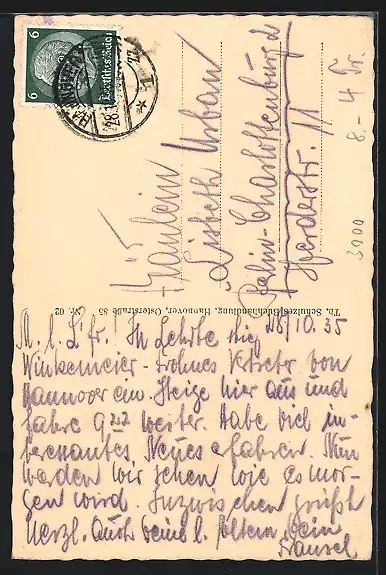 6
6
Deutsches Reich
Fräulein
Lisbeth Urban
Berlin-Charlottenburg 2
Herderstr. 11
8.- 4 Fr.
Th. Schulzes Buchhandlung, Hannover, Osterstraße 85 Nr. 02
26/10.35
M. l. L! In Lehrte stieg
Winkemeier von
Hannover ein. Steige hier aus und
fahre 9²² weiter. Habe viel in-
teressantes Neues erfahren. Nun
werden wir sehen wie es mor-
gen wird. Inzwischen grüßt
herzl. auch deine l. Eltern Dein
Hansel